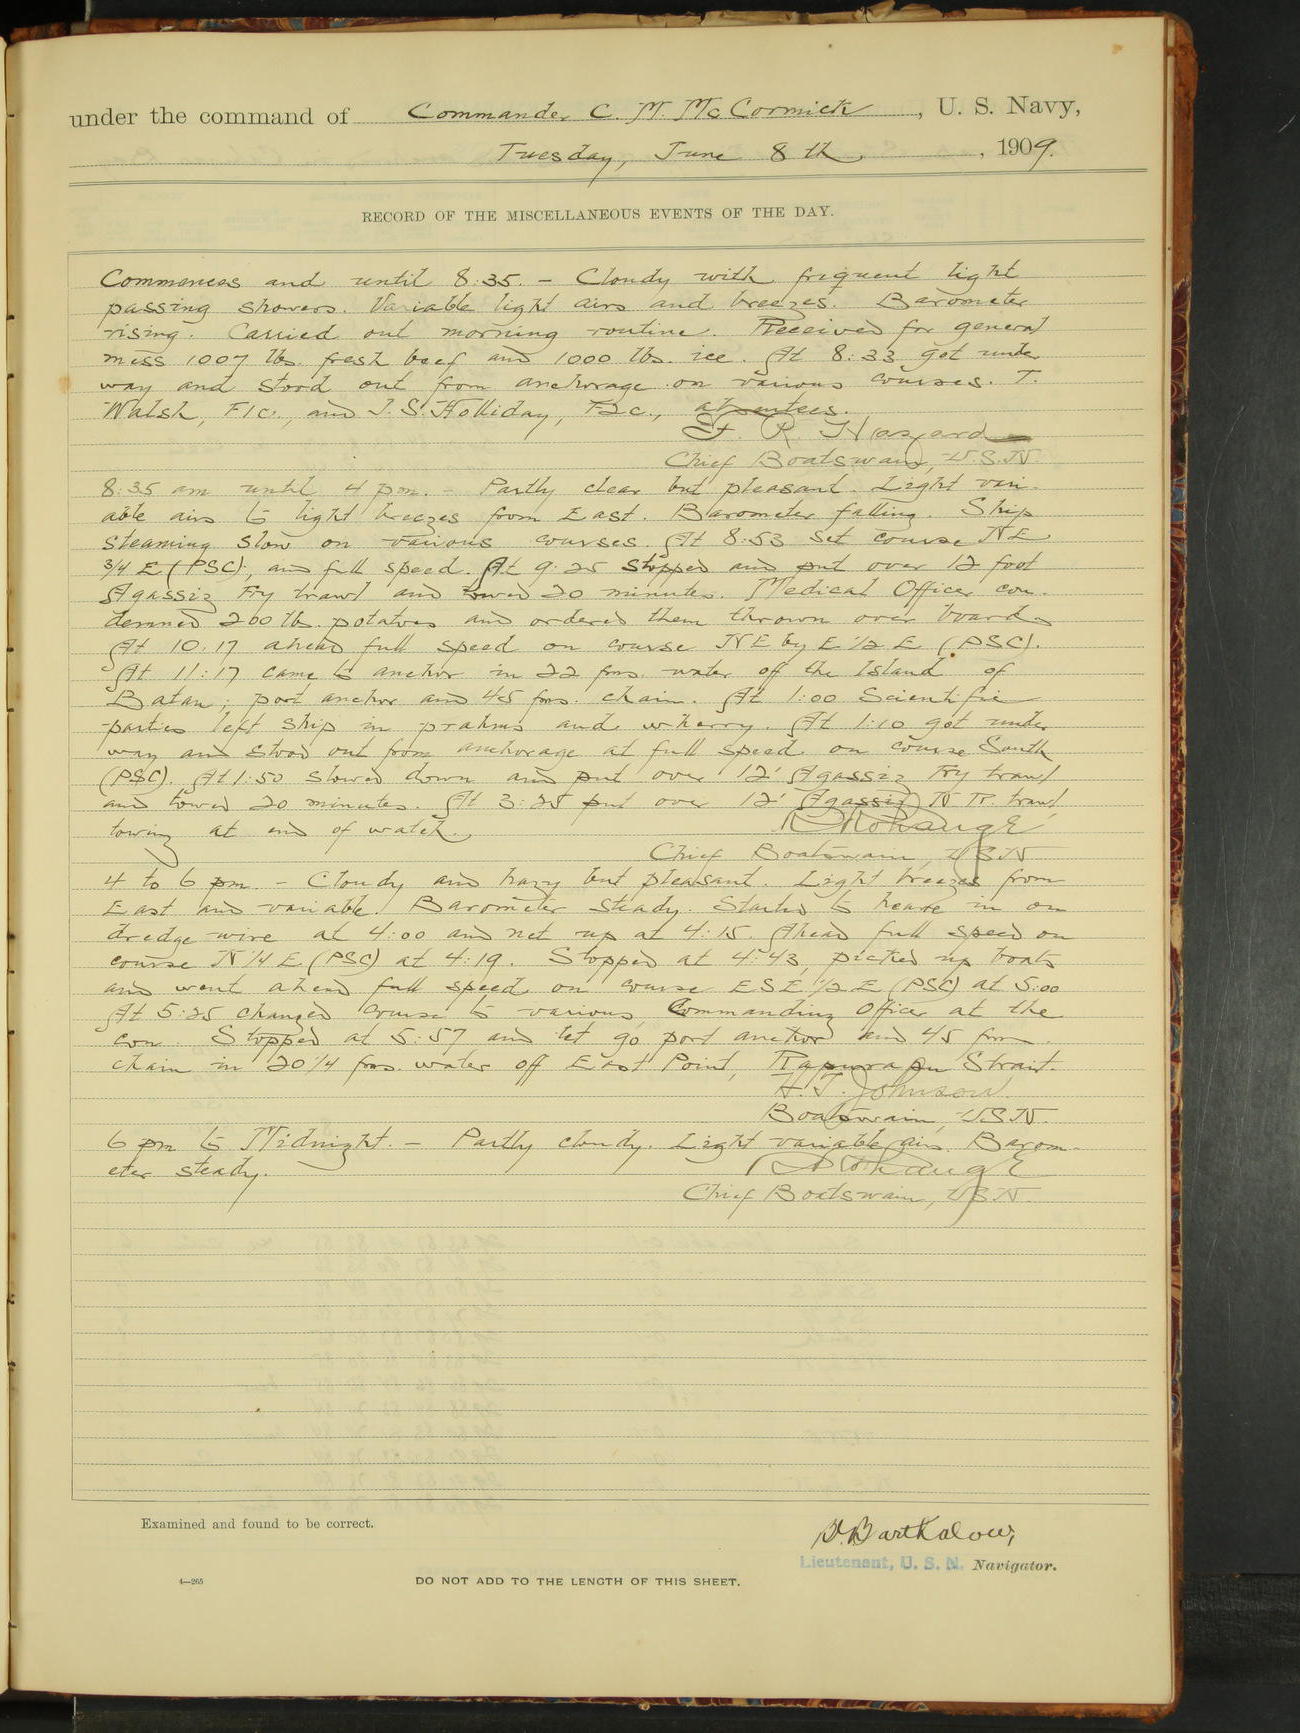 under the command of Commander C. M. McCormick, U. S. Navy,
Tuesday, June 8th, 1909.
RECORD OF THE MISCELLANEOUS EVENTS OF THE DAY.
Commences and until 8:35. – Cloudy with frequent light
passing showers. Variable light airs and breezes. Barometer
rising. Carried out morning routine. Received for general
mess 1007 lbs. fresh beef and 1000 lbs. ice. At 8:33 got under
way and stood out from anchorage on various courses. T.
Walsh, F1c., and J. S. Holliday, F2c., absentees.
F. R. Hazard
Chief Boatswain, U.S.N.
8:35 am until 4 pm. – Partly clear but pleasant. Light vari-
able airs to light breezes from East. Barometer falling. Ship
steaming slow on various courses. At 8:53 set course NE
3/4 E (PSC), and full speed. At 9:25 stopped and put over 12 foot
Agassiz Fry trawl and towed 20 minutes. Medical Officer con-
demned 200 lb. potatoes and ordered them thrown over board.
At 10:17 ahead full speed on course NE by E 1/2 E (PSC).
At 11:17 came to anchor in 22 fms. water off the Island of
Batan; port anchor and 45 fms. chain. At 1:00 Scientific
parties left ship in prahms and wherry. At 1:10 got under
way and stood out from anchorage at full speed on course South
(PSC). At 1:50 slowed down and put over 12' Agassiz Fry trawl
and towed 20 minutes. At 3:25 put over 12' Agassiz trawl
towing at end of watch.
Chief Boatswain, USN
4 to 6 pm. – Cloudy and hazy but pleasant. Light breezes from
East and variable. Barometer steady. Started to heave in on
dredge wire at 4:00 and net up at 4:15. Ahead full speed on
course N 1/4 E (PSC) at 4:19. Stopped at 4:43, picked up boats
and went ahead full speed on course ESE 1/2 E (PSC) at 5:00
At 5:25 changed course to various, Commanding Officer at the
con. Stopped at 5:57 and let go port anchor and 45 fms.
chain in 20 1/4 fms. water off East Point, Rapurapu Strait.
H. T. Johnson.
Boatswain, USN.
6 pm to Midnight. – Partly cloudy. Light variable airs. Barom-
eter steady.
Chief Boatswain, USN.
Examined and found to be correct.
Barthalow,
Lieutenant, U. S. N. Navigator.
4—265
DO NOT ADD TO THE LENGTH OF THIS SHEET.